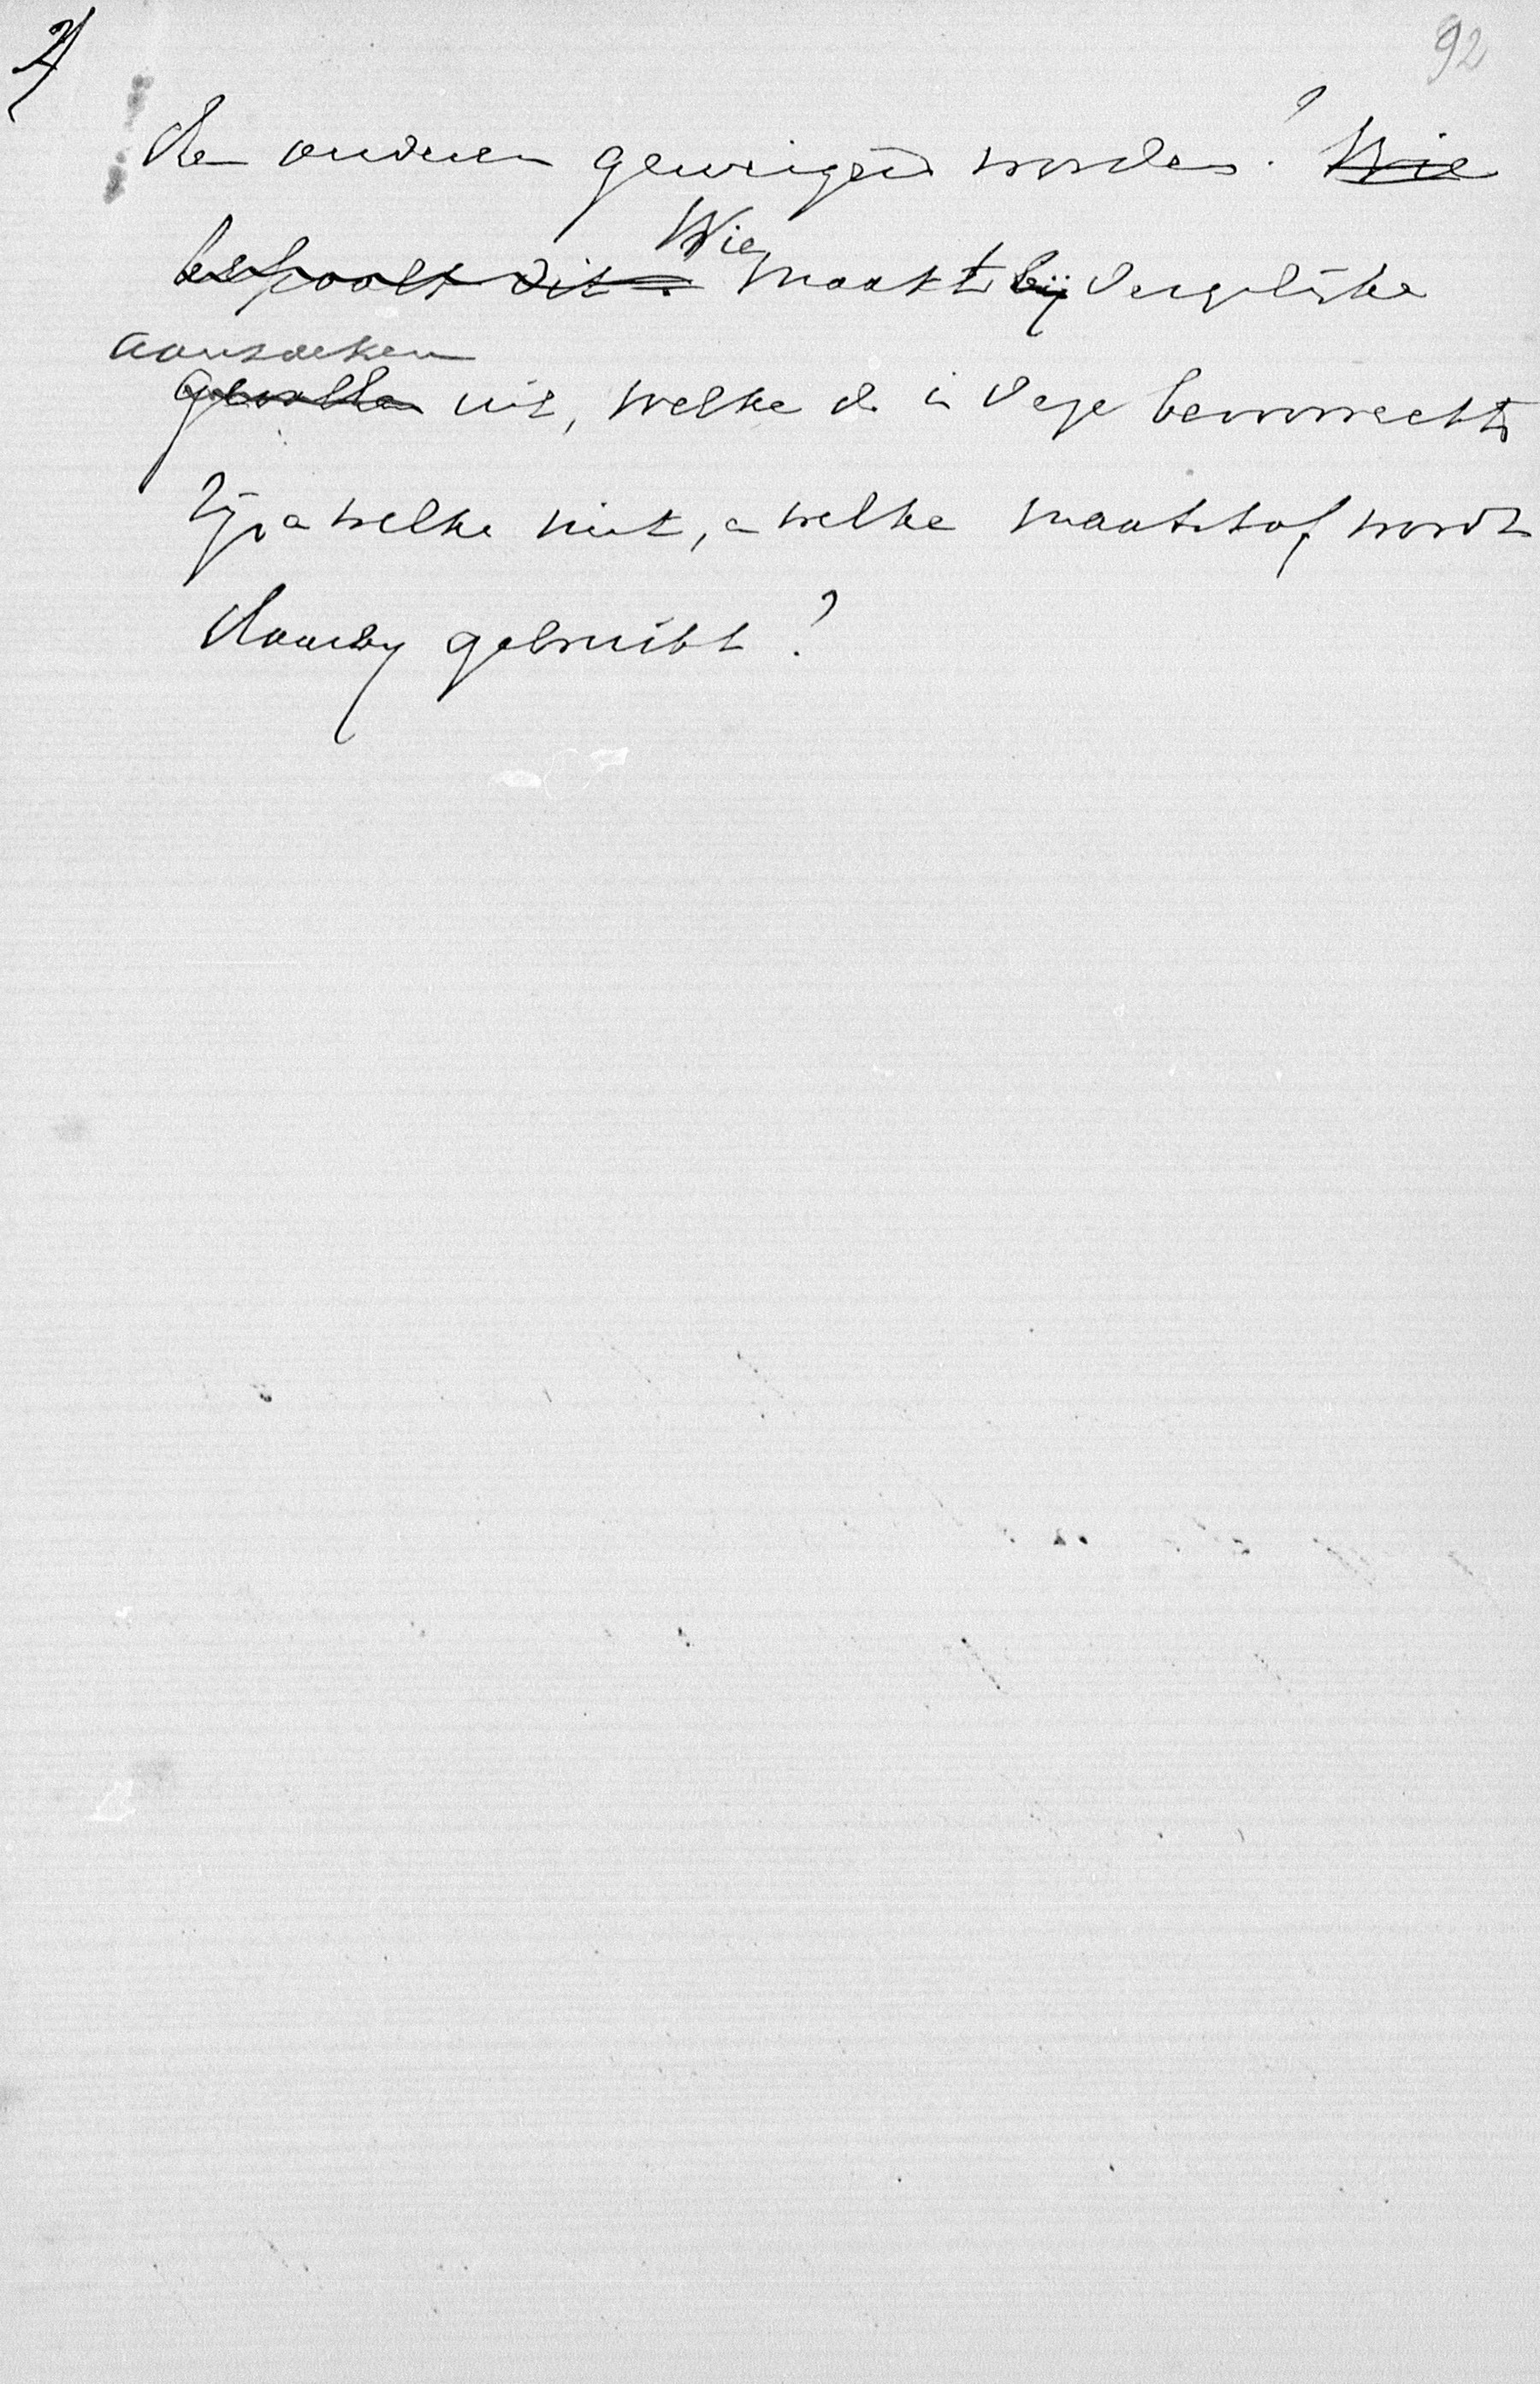 2)
92
den anderen geweigerd worden? Wie
bepaalt dit. Wie maakt bij dergelijke
aanzoeken
gevallen uit, welke de in deze bevoorrecht
zijn welke niet, en welke maatstaf wordt
daarbij gebruikt?